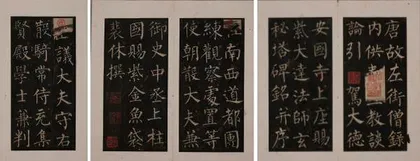 唐故左街僧錄
內供教談
論引駕大德
安國寺上座賜
紫大達法師玄
秘塔碑銘并序
江南西道都團
練觀察處置等
使朝散大夫兼
御史中丞上柱
國賜紫金魚袋
裴休撰
議大夫守右
散騎常侍充集
賢殿學士兼判